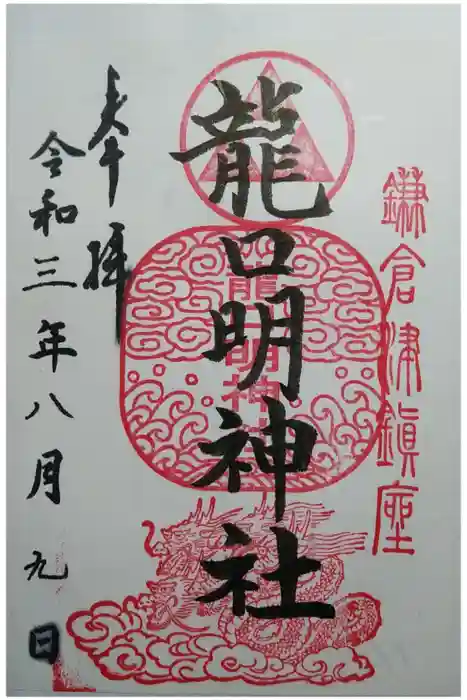 鎌倉津鎮座
龍口明神社
龍口明神社
奉拝
令和三年八月九日